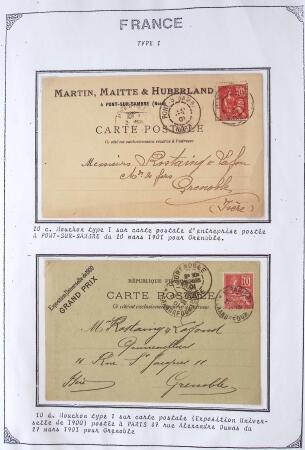 FRANCE
TYPE I
MARTIN, MAITTE & HUBERLAND
à PONT-SUR-SAMBRE (Nord)
CARTE POSTALE
Ce côté est exclusivement réservé à l'adresse
Messieurs Rostaing &
Mds de fers
Grenoble
(Isère)
10 c. Mouchon type I sur carte postale d'entreprise postée
à PONT-SUR-SAMBRE du 10 mars 1901 pour Grenoble.
Exposition Universelle de 1900
GRAND PRIX
GRENOBLE
RÉPUBLIQUE
CARTE POSTALE
Ce côté est exclusivement réservé
M. Rostaing &
Quincailliers
11 Rue St Jacques 11
Isère Grenoble
10 c. Mouchon type I sur carte postale (Exposition Univer-
selle de 1900) postée à PARIS 47 rue Alexandre Dumas du
27 mars 1901 pour Grenoble